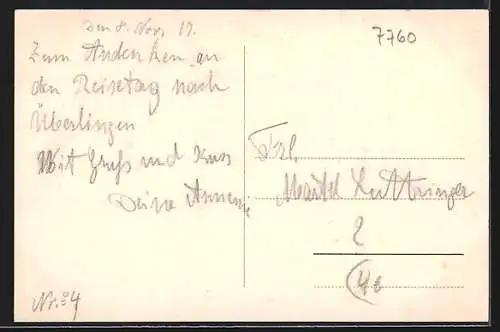 Den 8. Nov. 17.
7760
Zum Andenken an
den Reisetag nach
Überlingen
Mit Gruß und Kuss
Deine
Frl.
Martel
Nr. 4